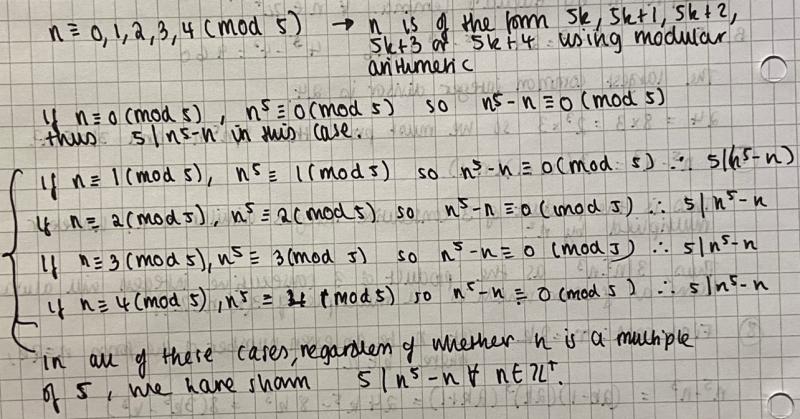 n ≡ 0,1,2,3,4 (mod 5) → n is of the form 5k, 5k+1, 5k+2,
5k+3 or 5k+4 using modular
arithmetic
If n ≡ 0 (mod 5), n⁵ ≡ 0 (mod 5) so n⁵-n ≡ 0 (mod 5)
thus 5|n⁵-n in this case.
If n ≡ 1 (mod 5), n⁵ ≡ 1 (mod 5) so n⁵-n ≡ 0 (mod 5) ∴ 5|(n⁵-n)
If n ≡ 2 (mod 5), n⁵ ≡ 2 (mod 5) so n⁵-n ≡ 0 (mod 5) ∴ 5|n⁵-n
If n ≡ 3 (mod 5), n⁵ ≡ 3 (mod 5) so n⁵-n ≡ 0 (mod 5) ∴ 5|n⁵-n
If n ≡ 4 (mod 5), n⁵ ≡ 4 (mod 5) so n⁵-n ≡ 0 (mod 5) ∴ 5|n⁵-n
in all of these cases, regardless of whether n is a multiple
of 5, we have shown 5|n⁵-n ∀ n∈ℤ⁺.